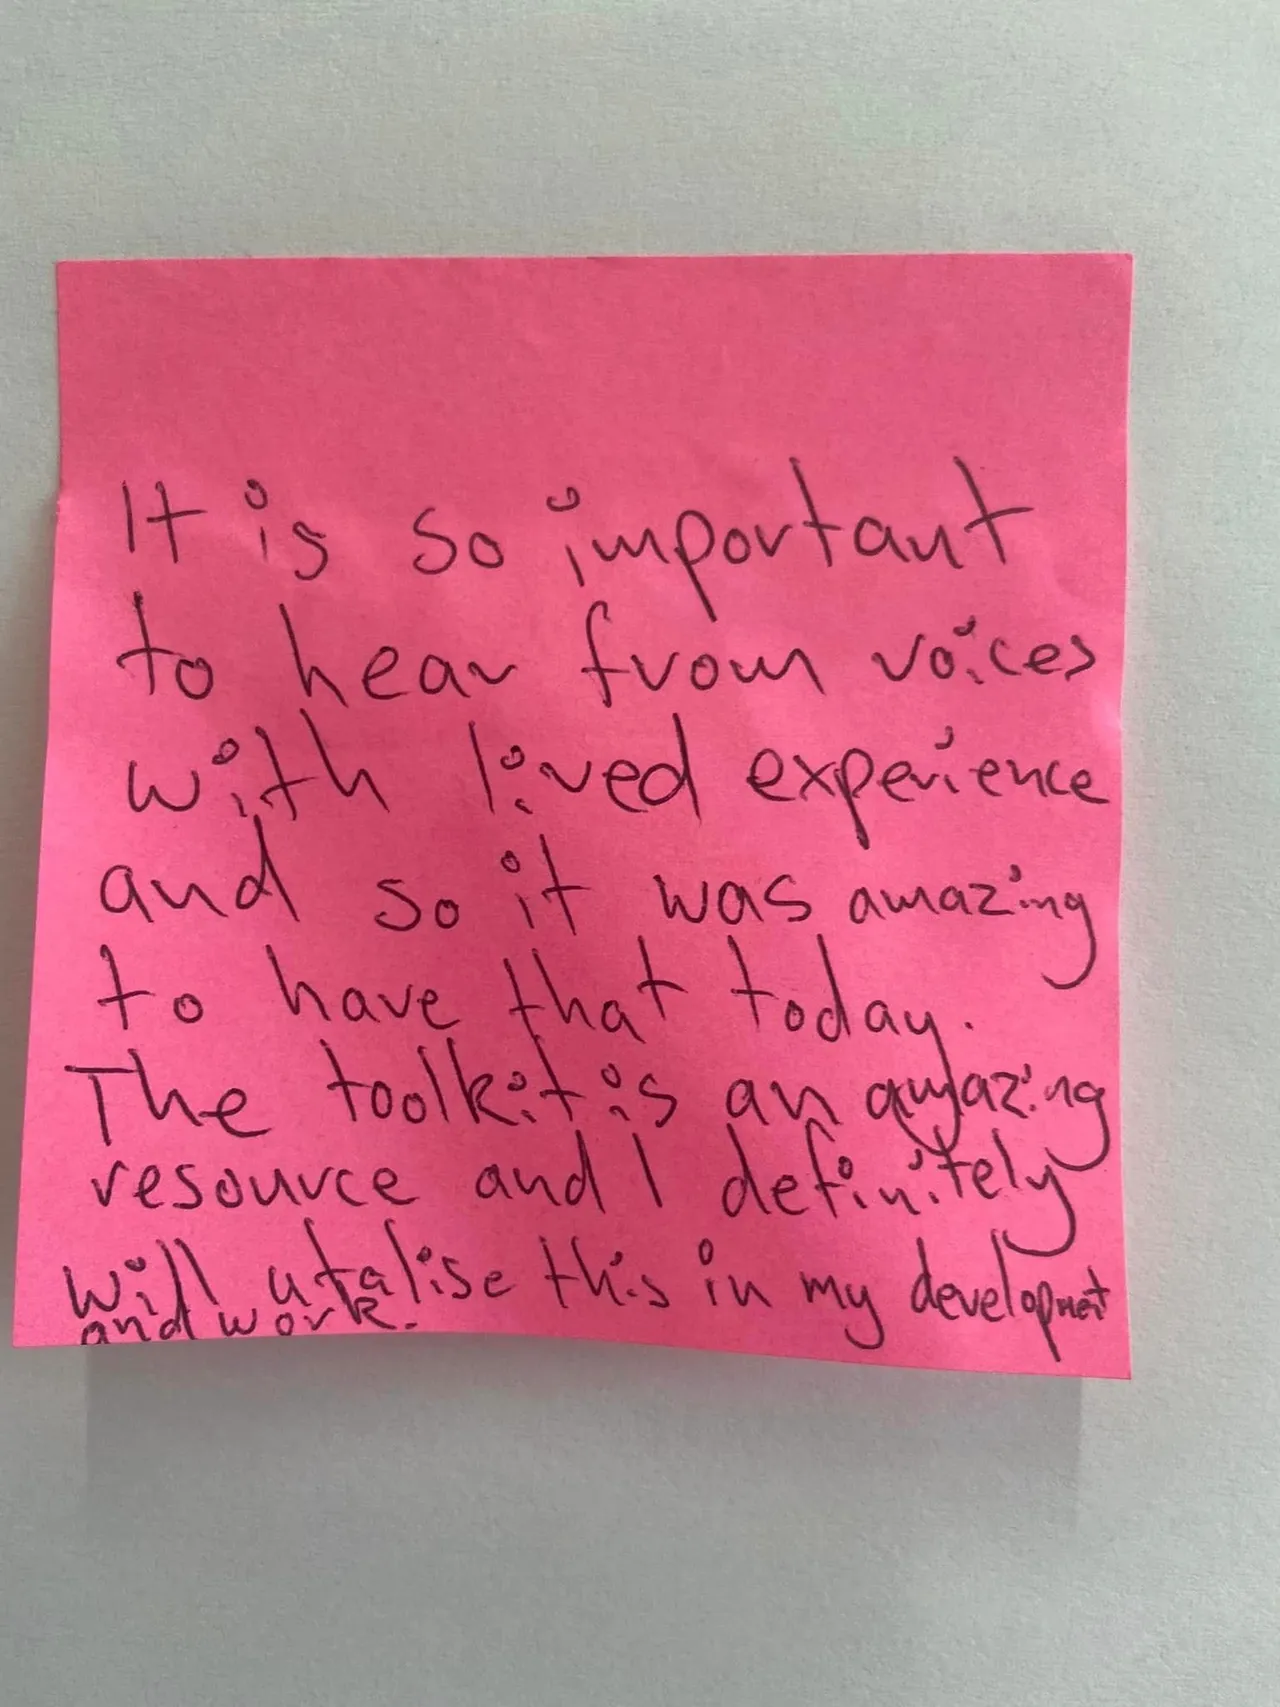 It is so important
to hear from voices
with lived experience
and so it was amazing
to have that today.
The toolkit is an amazing
resource and I definitely
will utalise this in my development
and work.